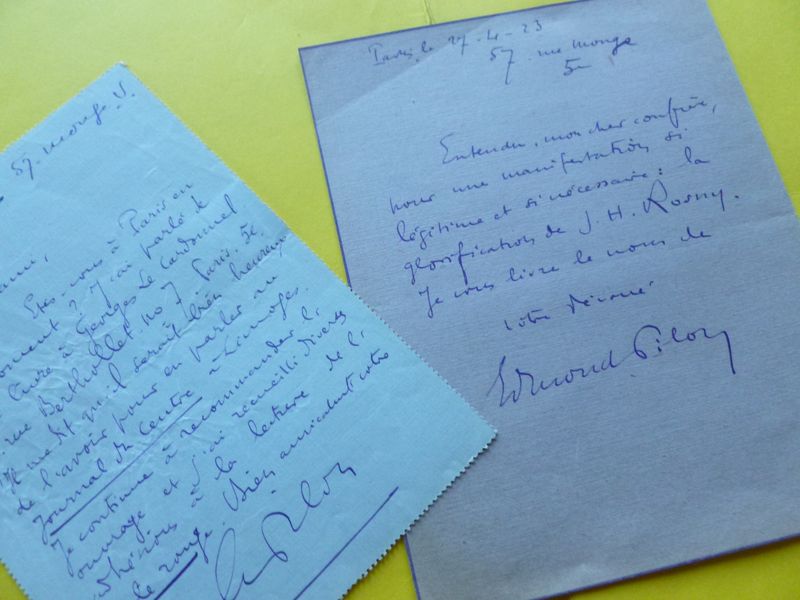 57. rue monge. V.
Etes-vous à Paris en
moment ? J'ai parlé de
livre à Georges Le Cardonnel
rue Berthollet no 7 Paris. Je
me dit qu'il serait bien heureux
de l'avoir pour en parler au
Journal du Centre à Limoges.
Je continue à recommander l'
ouvrage et j'ai recueilli diverses
adhésions à la lecture de
le rouge. Bien amicalement votre
Ed Pilon
Paris, le 27-4-23
57 rue monge
5e
Entendu, mon cher confrère,
pour une manifestation si
légitime et si nécessaire : la
glorification de J. H. Rosny.
Je vous livre le nom de
votre dévoué
Edmond Pilon